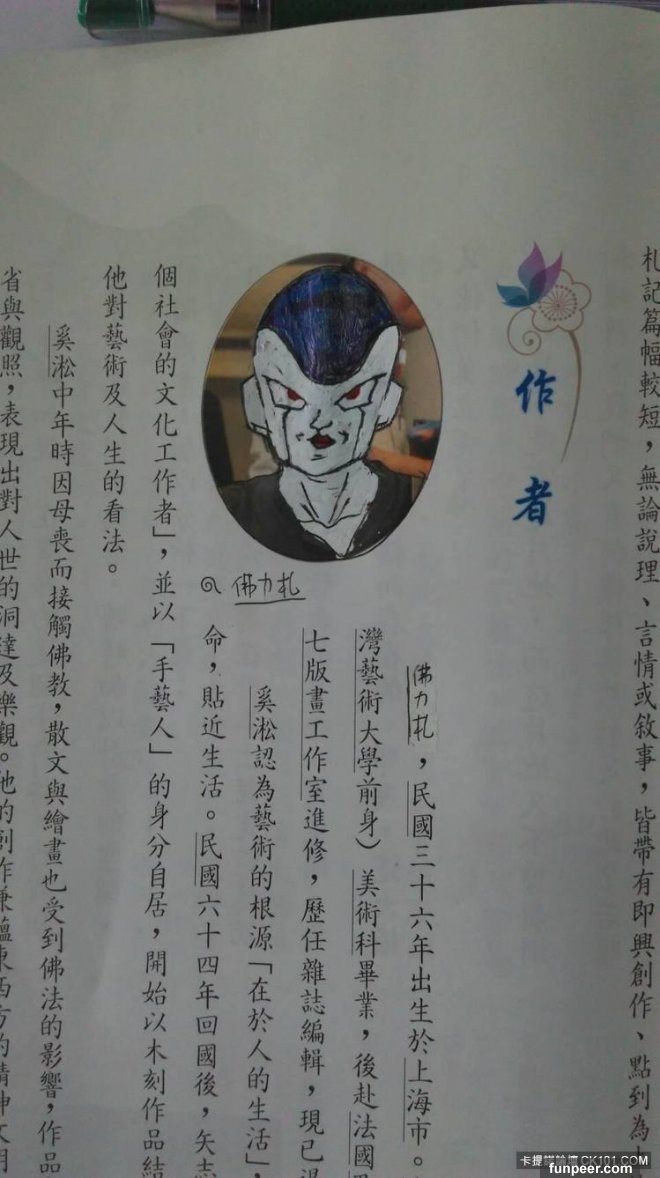 札記篇幅較短，無論說理、言情或敘事，皆帶有即興創作、點到為
作者
佛力札
佛力札，民國三十六年出生於上海市。
灣藝術大學前身）美術科畢業，後赴法國
七版畫工作室進修，歷任雜誌編輯，現已
奚淞認為藝術的根源「在於人的生活」，
命，貼近生活。民國六十四年回國後，矢志
個社會的文化工作者」，並以「手藝人」的身分自居，開始以木刻作品結
他對藝術及人生的看法。
奚淞中年時因母喪而接觸佛教，散文與繪畫也受到佛法的影響，作品
省與觀照，表現出對人世的洞達及樂觀。他的創作兼蘊東西方的精神文明
卡提諾論壇 CK101.COM
funpeer.com